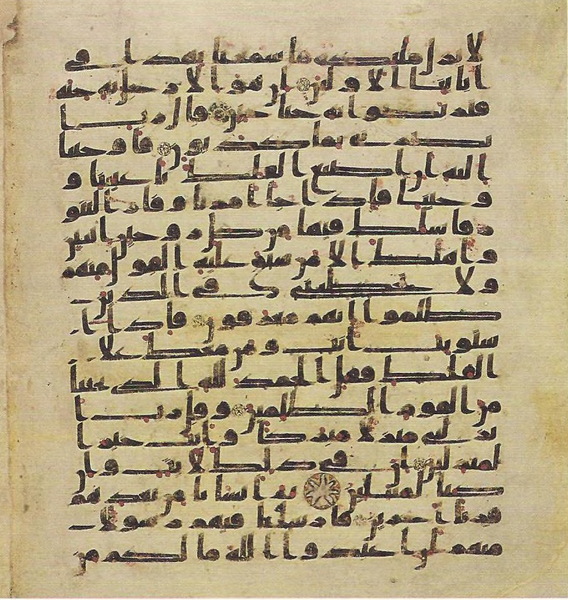 لانزل ملئكه ما سمعنا بهدا في
ابائنا الاولين ان هو الا رجل به جنه
فتربصوا به حتى حين قال رب ا
نصرني بما كذبون فاوحينا
اليه ان اصنع الفلك باعيننا و
وحينا فاذا جا امرنا وفار التنو
ر فاسلك فيها من كل زوجين اثنين
واهلك الا من سبق عليه القول منهم
ولا تخطبني في الذين
ظلموا انهم مغرقون فاذا ا
ستويت انت ومن معك على
الفلك فقل الحمد لله الذي نجينا
من القوم الظلمين وقل رب ا
نزلني منزلا مبركا وانت خير ا
لمنزلين ان في ذلك لايت وان
كنا لمبتلين ثم انشانا من بعدهم
قرنا اخرين فارسلنا فيهم رسولا
منهم ان اعبدوا الله ما لكم من